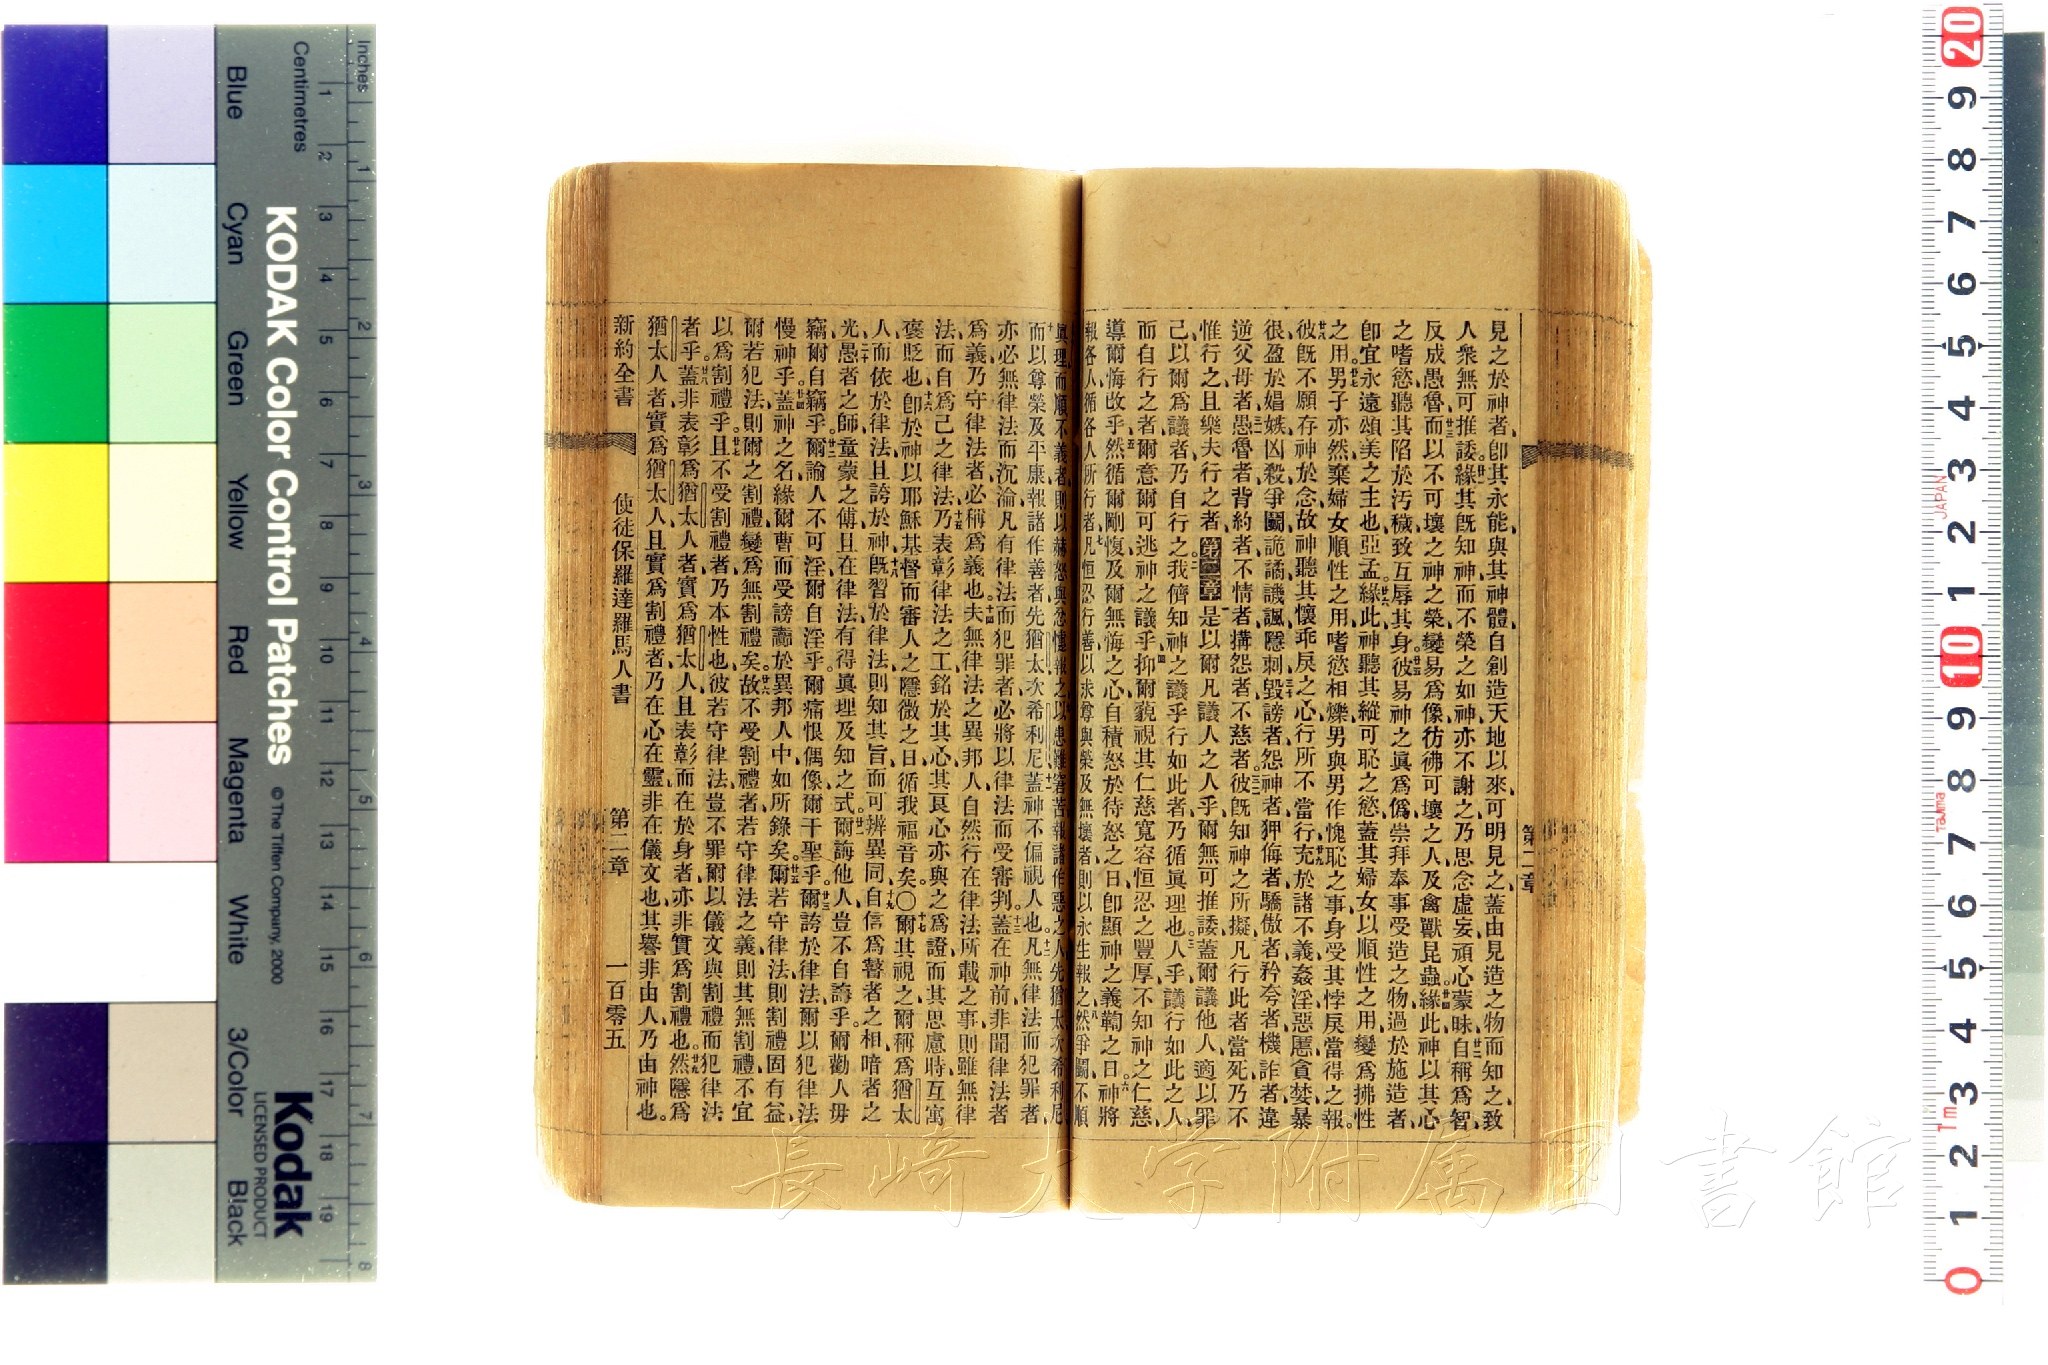 見之於神者、卽其永能、與其神體、自創造天地以來、可明見之、蓋由見造之物而知之、致
人衆無可推諉、緣其旣知神而不榮之如神、亦不謝之、乃思念虛妄、頑心蒙昧、自稱爲智、
反成愚魯、而以不可壞之神之榮、變易爲像、彷彿可壞之人、及禽獸昆蟲、緣此神以其心
之嗜慾、聽其陷於汚穢、致互辱其身、彼易神之眞爲僞、崇拜奉事受造之物、過於施造者、
卽宜永遠頌美之主也、亞孟、緣此神聽其縱可恥之慾、蓋其婦女以順性之用、變爲拂性
之用、男子亦然、棄婦女順性之用、嗜慾相爍、男與男作愧恥之事、身受其悖戾當得之報。
彼旣不願存神於念、故神聽其懷乖戾之心、行所不當行、充於諸不義、姦淫、惡慝、貪婪、暴
很、盈於娼嫉、凶殺、爭鬭、詭譎、譏諷、隱刺、毀謗者、怨神者、狎侮者、驕傲者、矜夸者、機詐者、違
逆父母者、愚魯者、背約者、不情者、搆怨者、不慈者、彼旣知神之所擬、凡行此者當死、乃不
惟行之、且樂夫行之者、第二章 是以爾凡議人之人乎、爾無可推諉、蓋爾議他人、適以罪
己、以爾爲議者、乃自行之、我儕知神之議乎行如此者、乃循眞理也、人乎、議行如此之人、
而自行之者、爾意爾可逃神之議乎、抑爾藐視其仁慈寬容恒忍之豐厚、不知神之仁慈、
導爾悔改乎、然循爾剛愎、及爾無悔之心、自積怒於待怒之日、卽顯神之義鞫之日、神將
報各人、循各人所行者、凡恒忍行善、以求尊與榮及無壞者、則以永生報之、然爭鬭不順
眞理、而順不義者、則以赫怒與忿懥報之、以患難窘苦報諸作惡之人、先猶太、次希利尼、
而以尊榮及平康、報諸作善者、先猶太、次希利尼、蓋神不偏視人也。凡無律法而犯罪者、
亦必無律法而沉淪、凡有律法而犯罪者、必將以律法而受審判、蓋在神前、非聞律法者
爲義、乃守律法者、必稱爲義也、夫無律法之異邦人、自然行在律法所載之事、則雖無律
法、而自爲己之律法、乃表彰律法之工、銘於其心、其良心亦與之爲證、而其思慮時互寓
褒貶也、卽於神以耶穌基督而審人之隱微之日、循我福音矣、○爾其視之、爾稱爲猶太
人、而依於律法、且誇於神、旣習於律法、則知其旨、而可辨異同、自信爲瞽者之相、暗者之
光、愚者之師、童蒙之傅、且在律法、有得眞理及知之式、爾誨他人、豈不自誨乎、爾勸人毋
竊、爾自竊乎、爾諭人不可淫、爾自淫乎、爾痛恨偶像、爾干聖乎、爾誇於律法、爾以犯律法、
慢神乎、蓋神之名、緣爾曹而受謗讟於異邦人中、如所錄矣、爾若守律法、則割禮固有益、
爾若犯法、則爾之割禮、變爲無割禮矣、故不受割禮者、若守律法之義、則其無割禮、不宜
以爲割禮乎、且不受割禮者、乃本性也、彼若守律法、豈不罪爾以儀文與割禮而犯律法
者乎、蓋非表彰爲猶太人者、實爲猶太人、且表彰而在於身者、亦非實爲割禮也、然隱爲
猶太人者、實爲猶太人、且實爲割禮者、乃在心、在靈、非在儀文也、其譽非由人、乃由神也。
新約全書 使徒保羅達羅馬人書 第二章 一百零五
Inches
Centimetres
KODAK Color Control Patches
© The Tiffen Company, 2000
Kodak
LICENSED PRODUCT
Blue
Cyan
Green
Yellow
Red
Magenta
White
3/Color
Black
1 2 3 4 5 6 7 8 9 10 11 12 13 14 15 16 17 18 19
1 2 3 4 5 6 7 8
20 9 8 7 6 5 4 3 2 1 10 9 8 7 6 5 4 3 2 1 0
JAPAN
Tajima
Tm
長崎大学附属図書館